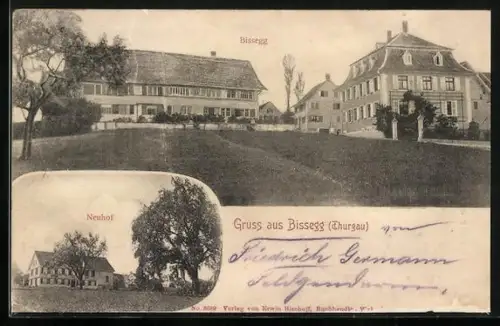 Bissegg
Neuhof
Gruss aus Bissegg (Thurgau) von
Friedrich Germann
Feldgendarm,
Verlag von Erwin Bischoff, Buchhandlg., Wyl